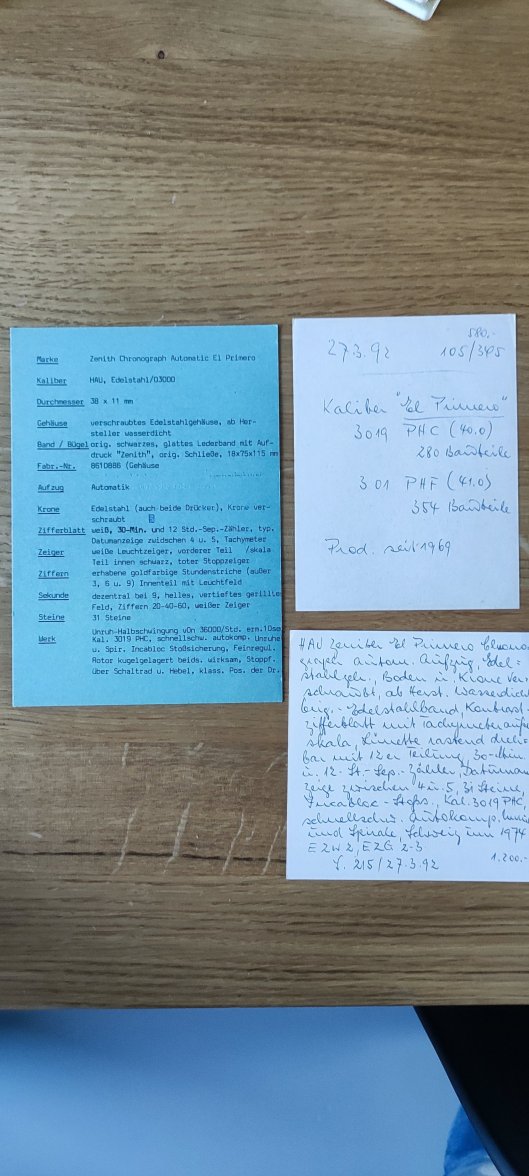 Marke Zenith Chronograph Automatic El Primero
Kaliber HAU, Edelstahl/03000
Durchmesser 38 x 11 mm
Gehäuse verschraubtes Edelstahlgehäuse, ab Her-
steller wasserdicht
Band / Bügel orig. schwarzes, glattes Lederband mit Auf-
druck "Zenith", orig. Schließe, 18x75x115 mm
Fabr.-Nr. 861D886 (Gehäuse
Aufzug Automatik
Krone Edelstahl (auch beide Drücker), Krone ver-
schraubt
Zifferblatt weiß, 30-Min. und 12 Std.-Sep.-Zähler, typ.
Datumanzeige zwidschen 4 u. 5, Tachymeter
Zeiger weiße Leuchtzeiger, vorderer Teil /skala
Teil innen schwarz, toter Stoppzeiger
Ziffern erhabene goldfarbige Stundenstriche (außer
3, 6 u. 9) Innenteil mit Leuchtfeld
Sekunde dezentral bei 9, helles, vertieftes gerilltes
Feld, Ziffern 20-40-60, weißer Zeiger
Steine 31 Steine
Unruh-Halbschwingung vOn 36000/Std. erm.1Dse
Werk Kal. 3019 PHC, schnellschw. autokomp. Unruhe
u. Spir. Incabloc Stoßsicherung, Feinregul.
Rotor kugelgelagert beids. wirksam, Stoppf.
über Schaltrad u. Hebel, klass. Pos. der Dr.
580,-
27.3.92 105/345
Kaliber "El Primero"
3019 PHC (40.0)
280 Bauteile
301 PHF (41.0)
354 Bauteile
Prod. seit 1969
HAU Zenither El Primero Chrono-
graph autom. Aufzug, Edel-
stahlgeh., Boden u. Krone ver-
schraubt, ab Herst. wasserdicht
orig.-Edelstahlband, Kontrast-
zifferblatt mit Tachymeter
skala, Lünette rastend dreh-
bar mit 12er Teilung, 30-Min.
u. 12-St.-Sep.-Zähler, Datuman-
zeige zwischen 4 u. 5, 31 Steine,
Incabloc-Stoßs., Kal. 3019 PHC,
schnellschw. autokomp. Unruh
und Spirale, Schweiz um 1974
EZW 2, EZG 2-3
L. 215/27.3.92 1.200.-